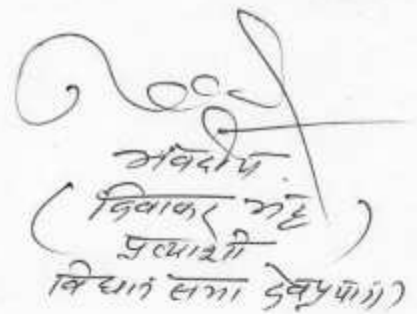 भवदीय
(दिवाकर भट्ट)
प्रत्याशी
विधान सभा देवप्रयाग